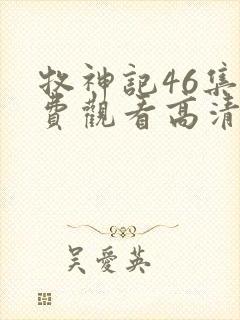 牧神記46集
費觀看高清
吳愛英